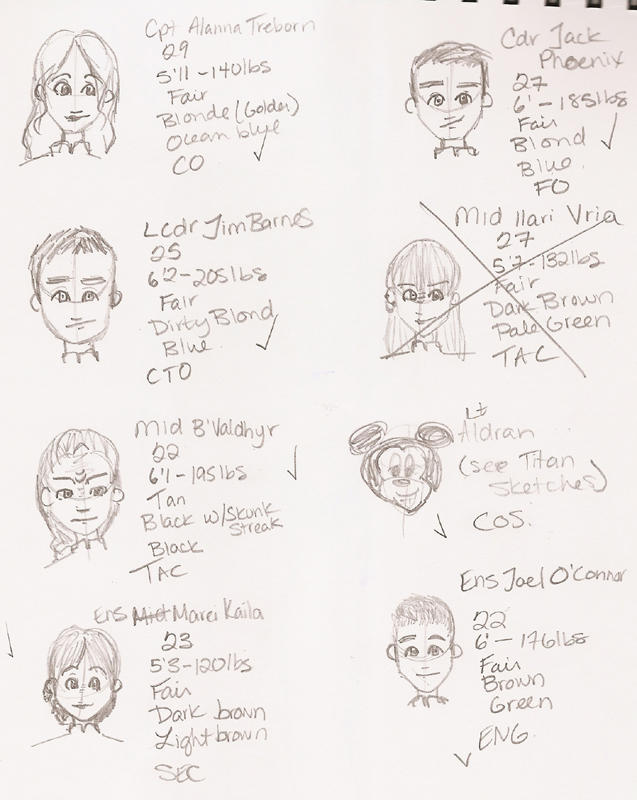 Cpt Alanna Treborn
29
5'11 - 140lbs
Fair
Blonde (Golden)
Ocean blue
CO
Cdr Jack
Phoenix
27
6' - 185lbs
Fair
Blond
Blue
FO
Lcdr Jim Barnes
25
6'2 - 205lbs
Fair
Dirty Blond
Blue
CTO
Mid Ilari Vria
27
5'7 - 132lbs
Fair
Dark Brown
Pale Green
TAC
Mid B'Valdhyr
22
6'1 - 195lbs
Tan
Black w/skunk
streak
Black
TAC
Lt
Aldran
(see Titan
Sketches)
COS.
Ens Mid Marei Kaila
23
5'3 - 120lbs
Fair
Dark brown
Light brown
SEC
Ens Joel O'Connor
22
6' - 176lbs
Fair
Brown
Green
ENG.